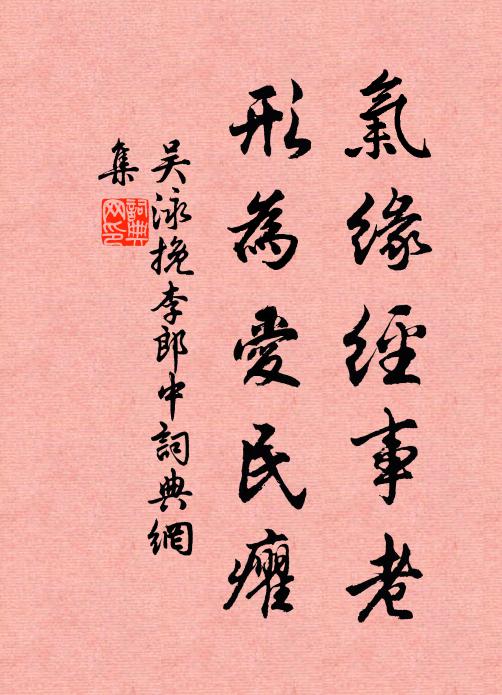 氣緣經事老
形為愛民癯
吳泳挽李郎中詞典網
集
詞典
网印